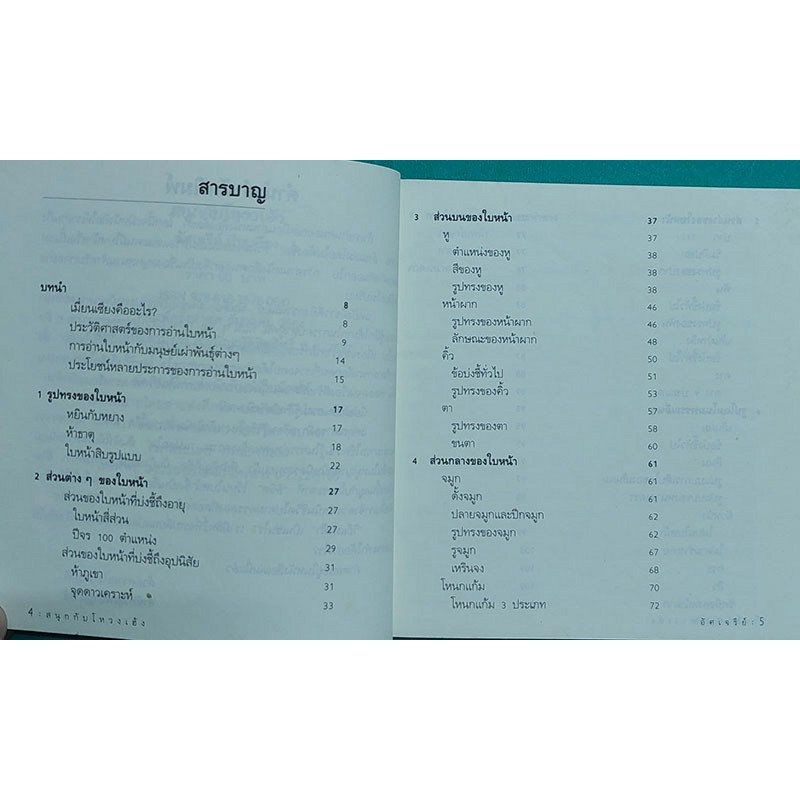 สารบาญ
บทนำ 8
เมี่ยนเซียงคืออะไร? 8
ประวัติศาสตร์ของการอ่านใบหน้า 9
การอ่านใบหน้ากับมนุษย์เผ่าพันธุ์ต่างๆ 14
ประโยชน์หลายประการของการอ่านใบหน้า 15
1 รูปทรงของใบหน้า 17
หยินกับหยาง 17
ห้าธาตุ 18
ใบหน้าสิบรูปแบบ 22
2 ส่วนต่าง ๆ ของใบหน้า 27
ส่วนของใบหน้าที่บ่งชี้ถึงอายุ 27
ใบหน้าสี่ส่วน 27
ปีจร 100 ตำแหน่ง 29
ส่วนของใบหน้าที่บ่งชี้ถึงอุปนิสัย 31
ห้าภูเขา 31
จุดดาวเคราะห์ 33
4 : สนุกกับโหงวเฮ้ง
3 ส่วนบนของใบหน้า 37
หู 37
ตำแหน่งของหู 38
สีของหู 38
รูปทรงของหู 38
หน้าผาก 46
รูปทรงของหน้าผาก 46
ลักษณะของหน้าผาก 48
คิ้ว 50
ข้อบ่งชี้ทั่วไป 51
รูปทรงของคิ้ว 53
ตา 57
รูปทรงของตา 58
ขนตา 60
4 ส่วนกลางของใบหน้า 61
จมูก 61
ดั้งจมูก 61
ปลายจมูกและปีกจมูก 62
รูปทรงของจมูก 62
รูจมูก 67
เหรินจง 68
โหนกแก้ม 70
โหนกแก้ม 3 ประเภท 72
อัศเจรีย์ : 5